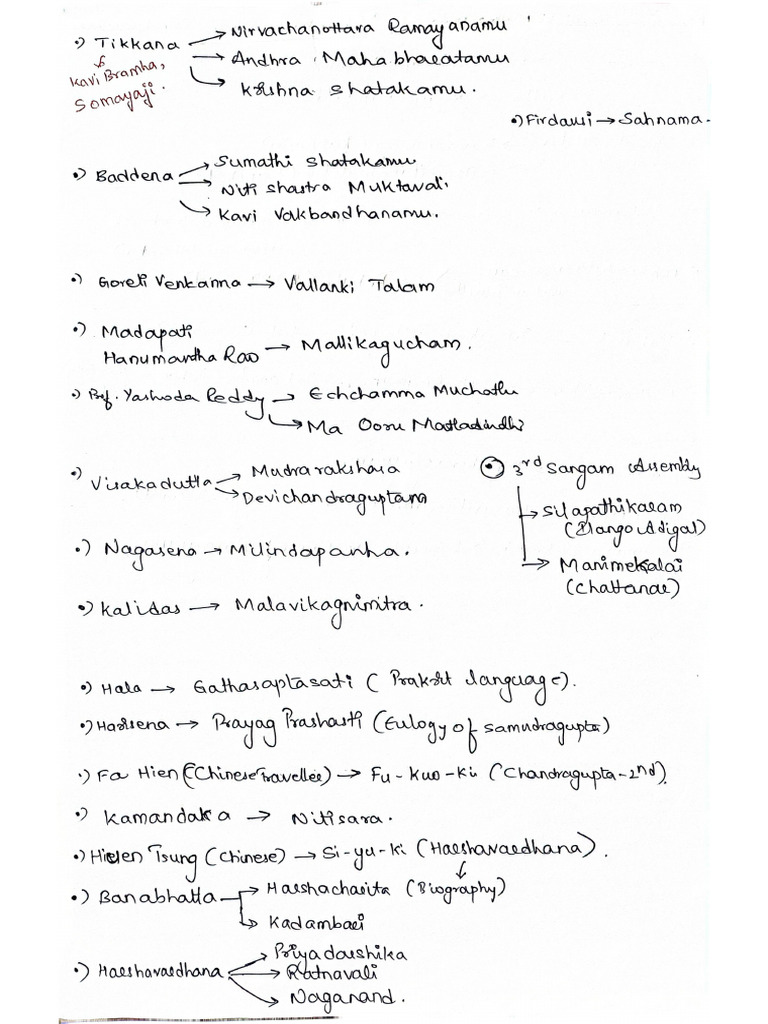 •) Tikkana → Nirvachanottara Ramayanamu
→ Andhra Mahabharatamu
→ Krishna Shatakamu.
Kavi Bramha,
Somayaji.
•) Firdausi → Sahnama.
•) Baddena → Sumathi Shatakamu
→ Niti Shastra Muktavali
→ Kavi Vakbandhanamu.
•) Goreti Venkanna → Vallanki Talam
•) Madapati
Hanumantha Rao → Mallikagucham.
•) Prof. Yashoda Reddy → Echchamma Muchatlu
→ Ma Ooru Matladindhi
•) Visakadutta → Mudrarakshasa
→ Devichandraguptam
3rd Sangam Assembly
→ Silapathikaram
(Elango Adigal)
→ Manimekalai
(Chattanar)
•) Nagasena → Milindapanha.
•) Kalidas → Malavikagnimitra.
•) Hala → Gathasaptasati (Prakrit language).
•) Harisena → Prayag Prashasti (Eulogy of Samudragupta)
•) Fa Hien (Chinese Traveller) → Fu-Kuo-Ki (Chandragupta-2nd)
•) Kamandaka → Nitisara.
•) Hieun Tsung (Chinese) → Si-yu-ki (Harshavardhana).
•) Banabhatta → Harshacharita (Biography)
→ Kadambari
•) Harshavardhana → Priyadarshika
→ Ratnavali
→ Naganand.